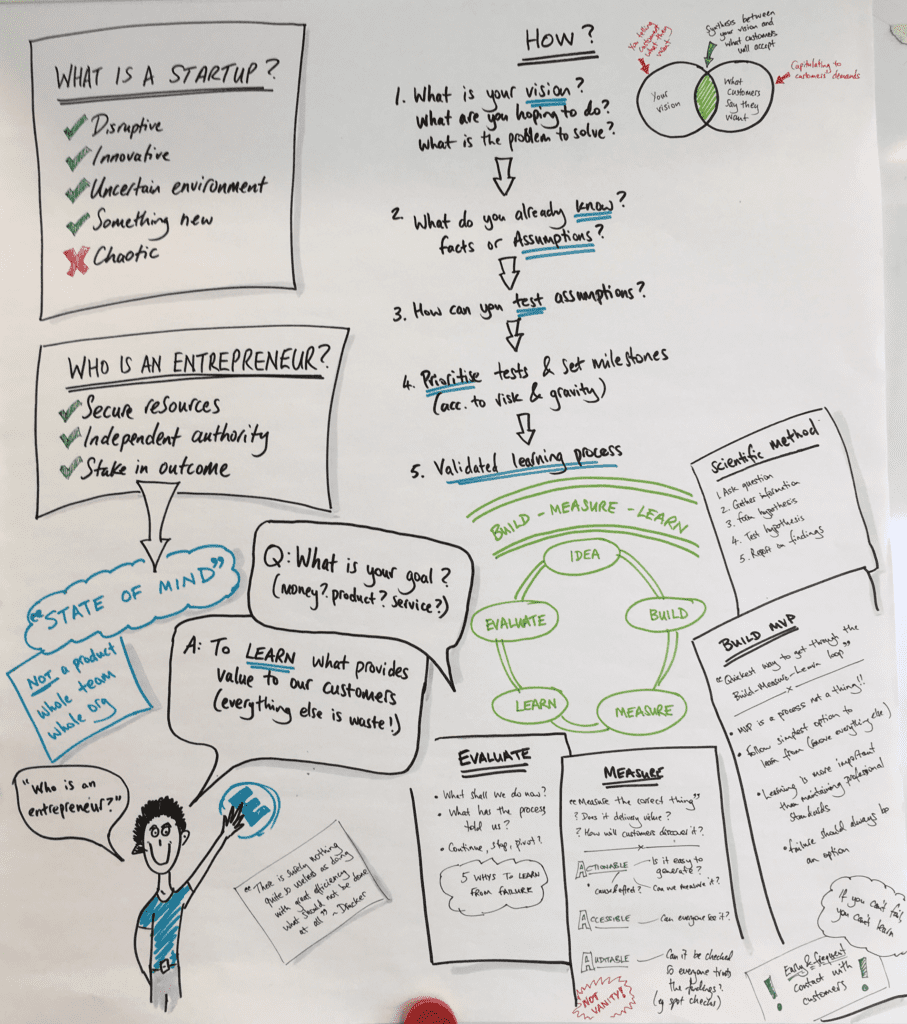 WHAT IS A STARTUP?
Disruptive
Innovative
Uncertain environment
Something new
Chaotic
WHO IS AN ENTREPRENEUR?
Secure resources
Independent authority
Stake in outcome
"STATE OF MIND"
NOT a product
whole team
whole org
"Who is an
entrepreneur?"
Q: What is your goal?
(money? product? service?)
A: To LEARN what provides
value to our customers
(everything else is waste!)
"There is safely nothing
quite so useless as doing
with great efficiency
what should not be done
at all" ~ Drucker
HOW?
1. What is your vision?
What are you hoping to do?
What is the problem to solve?
2. What do you already know?
facts or Assumptions?
3. How can you test assumptions?
4. Prioritise tests & set milestones
(acc. to risk & gravity)
5. Validated learning process
You telling
customers
what they
want
Synthesis between
your vision and
what customers
will accept
Capitulating to
customers' demands
Your
vision
What
customers
say they
want
BUILD - MEASURE - LEARN
IDEA
BUILD
MEASURE
LEARN
EVALUATE
Scientific Method
1. Ask question
2. Gather information
3. form hypothesis
4. Test hypothesis
5. Report on findings
BUILD MVP
"Quickest way to get through the
Build-Measure-Learn loop"
• MVP is a process not a thing!!
• follow simplest option to
learn from (remove everything else)
• Learning is more important
than maintaining professional
standards
• failure should always be
an option
If you can't fail,
you can't learn
! Early & frequent !
contact with
customers
EVALUATE
• What shall we do now?
• What has the process
told us?
• Continue, stop, pivot?
5 WHYS TO LEARN
FROM FAILURE
MEASURE
"Measure the correct thing"
? Does it delivery value?
? How will customers discover it?
ACTIONABLE
Is it easy to
generate?
cause & effect?
Can we measure it?
ACCESSIBLE
Can everyone see it?
AUDITABLE
Can it be checked
so everyone trusts
the findings?
(eg spot checks)
NOT
VANITY!